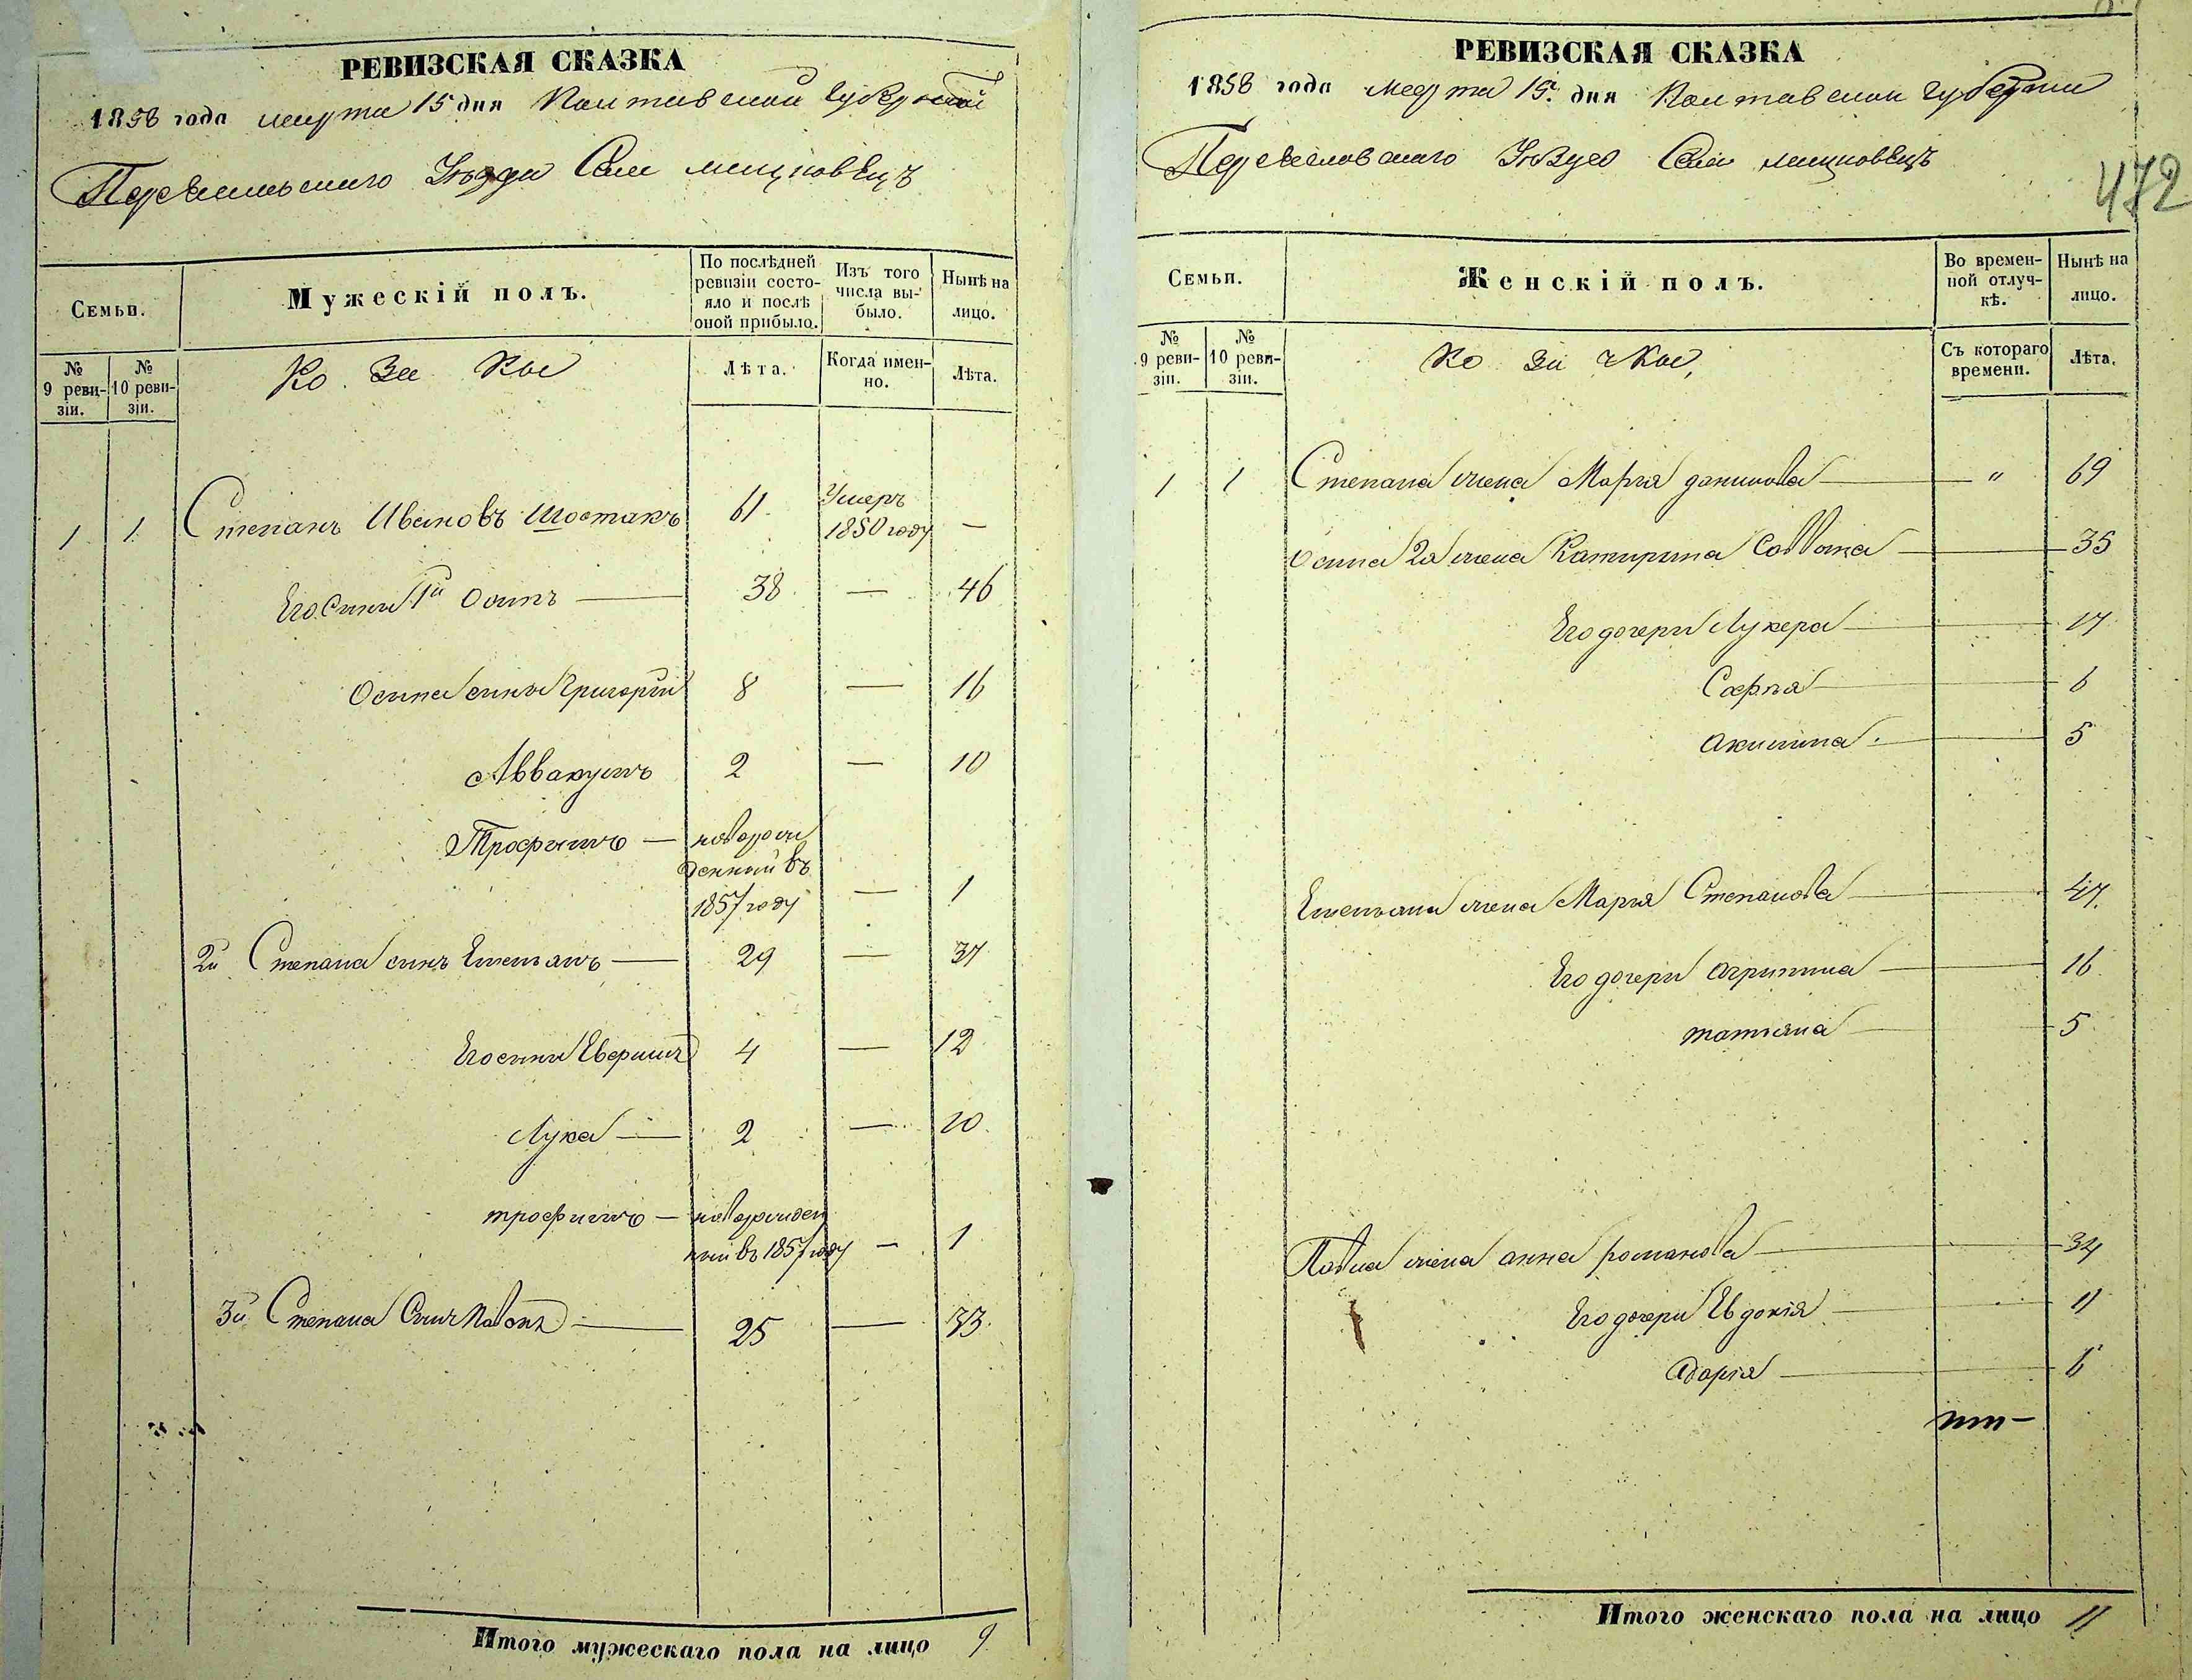 РЕВИЗСКАЯ СКАЗКА
1858 года марта 15 дня Полтавской Губерній
Переяславскаго Уѣзда Села
Семьи.
Мужескій полъ.
По послѣдней ревизіи состояло и послѣ оной прибыло.
Изъ того числа выбыло.
Нынѣ на лицо.
№ 9 ревизіи.
№ 10 ревизіи.
Козаки
Лѣта.
Когда именно.
Лѣта.
1 1 Степанъ Ивановъ Шостакъ 61 Умеръ 1850 году —
Его Сини 1й Осипъ — 38 — 46
Осипа сини Григорій 8 — 16
Аввакумъ 2 — 10
Трофимъ — новорож
денний въ
1857 году — 1
2й Степана синъ Емельянъ — 29 — 37
Его сини 4 — 12
Лука — 2 — 10
трофимъ — новорожден
ний въ 1857 году — 1
3й Степана Синъ Павелъ — 25 — 33
Итого мужескаго пола на лицо 9
РЕВИЗСКАЯ СКАЗКА
1858 года марта 15. дня Полтавской губерніи
Переяславскаго Уѣзда Села
472
Семьи.
Женскій полъ.
Во временной отлучкѣ.
Нынѣ на лицо.
№ 9 ревизіи.
№ 10 ревизіи.
Козачки
Съ котораго времени.
Лѣта.
1 1 Степана жена Марья данилова — " 69
Осипа 2я жена Катирина Саввина — 35
Его дочери Лукера — 17
Софья — 6
Акилина — 5
Емельяна жена Марья Степанова — 47
Его дочери Агрипина — 16
татьяна — 5
Павла жена анна романова — 34
Его дочери Евдокія — 11
дарія — 6
Итого женскаго пола на лицо 11